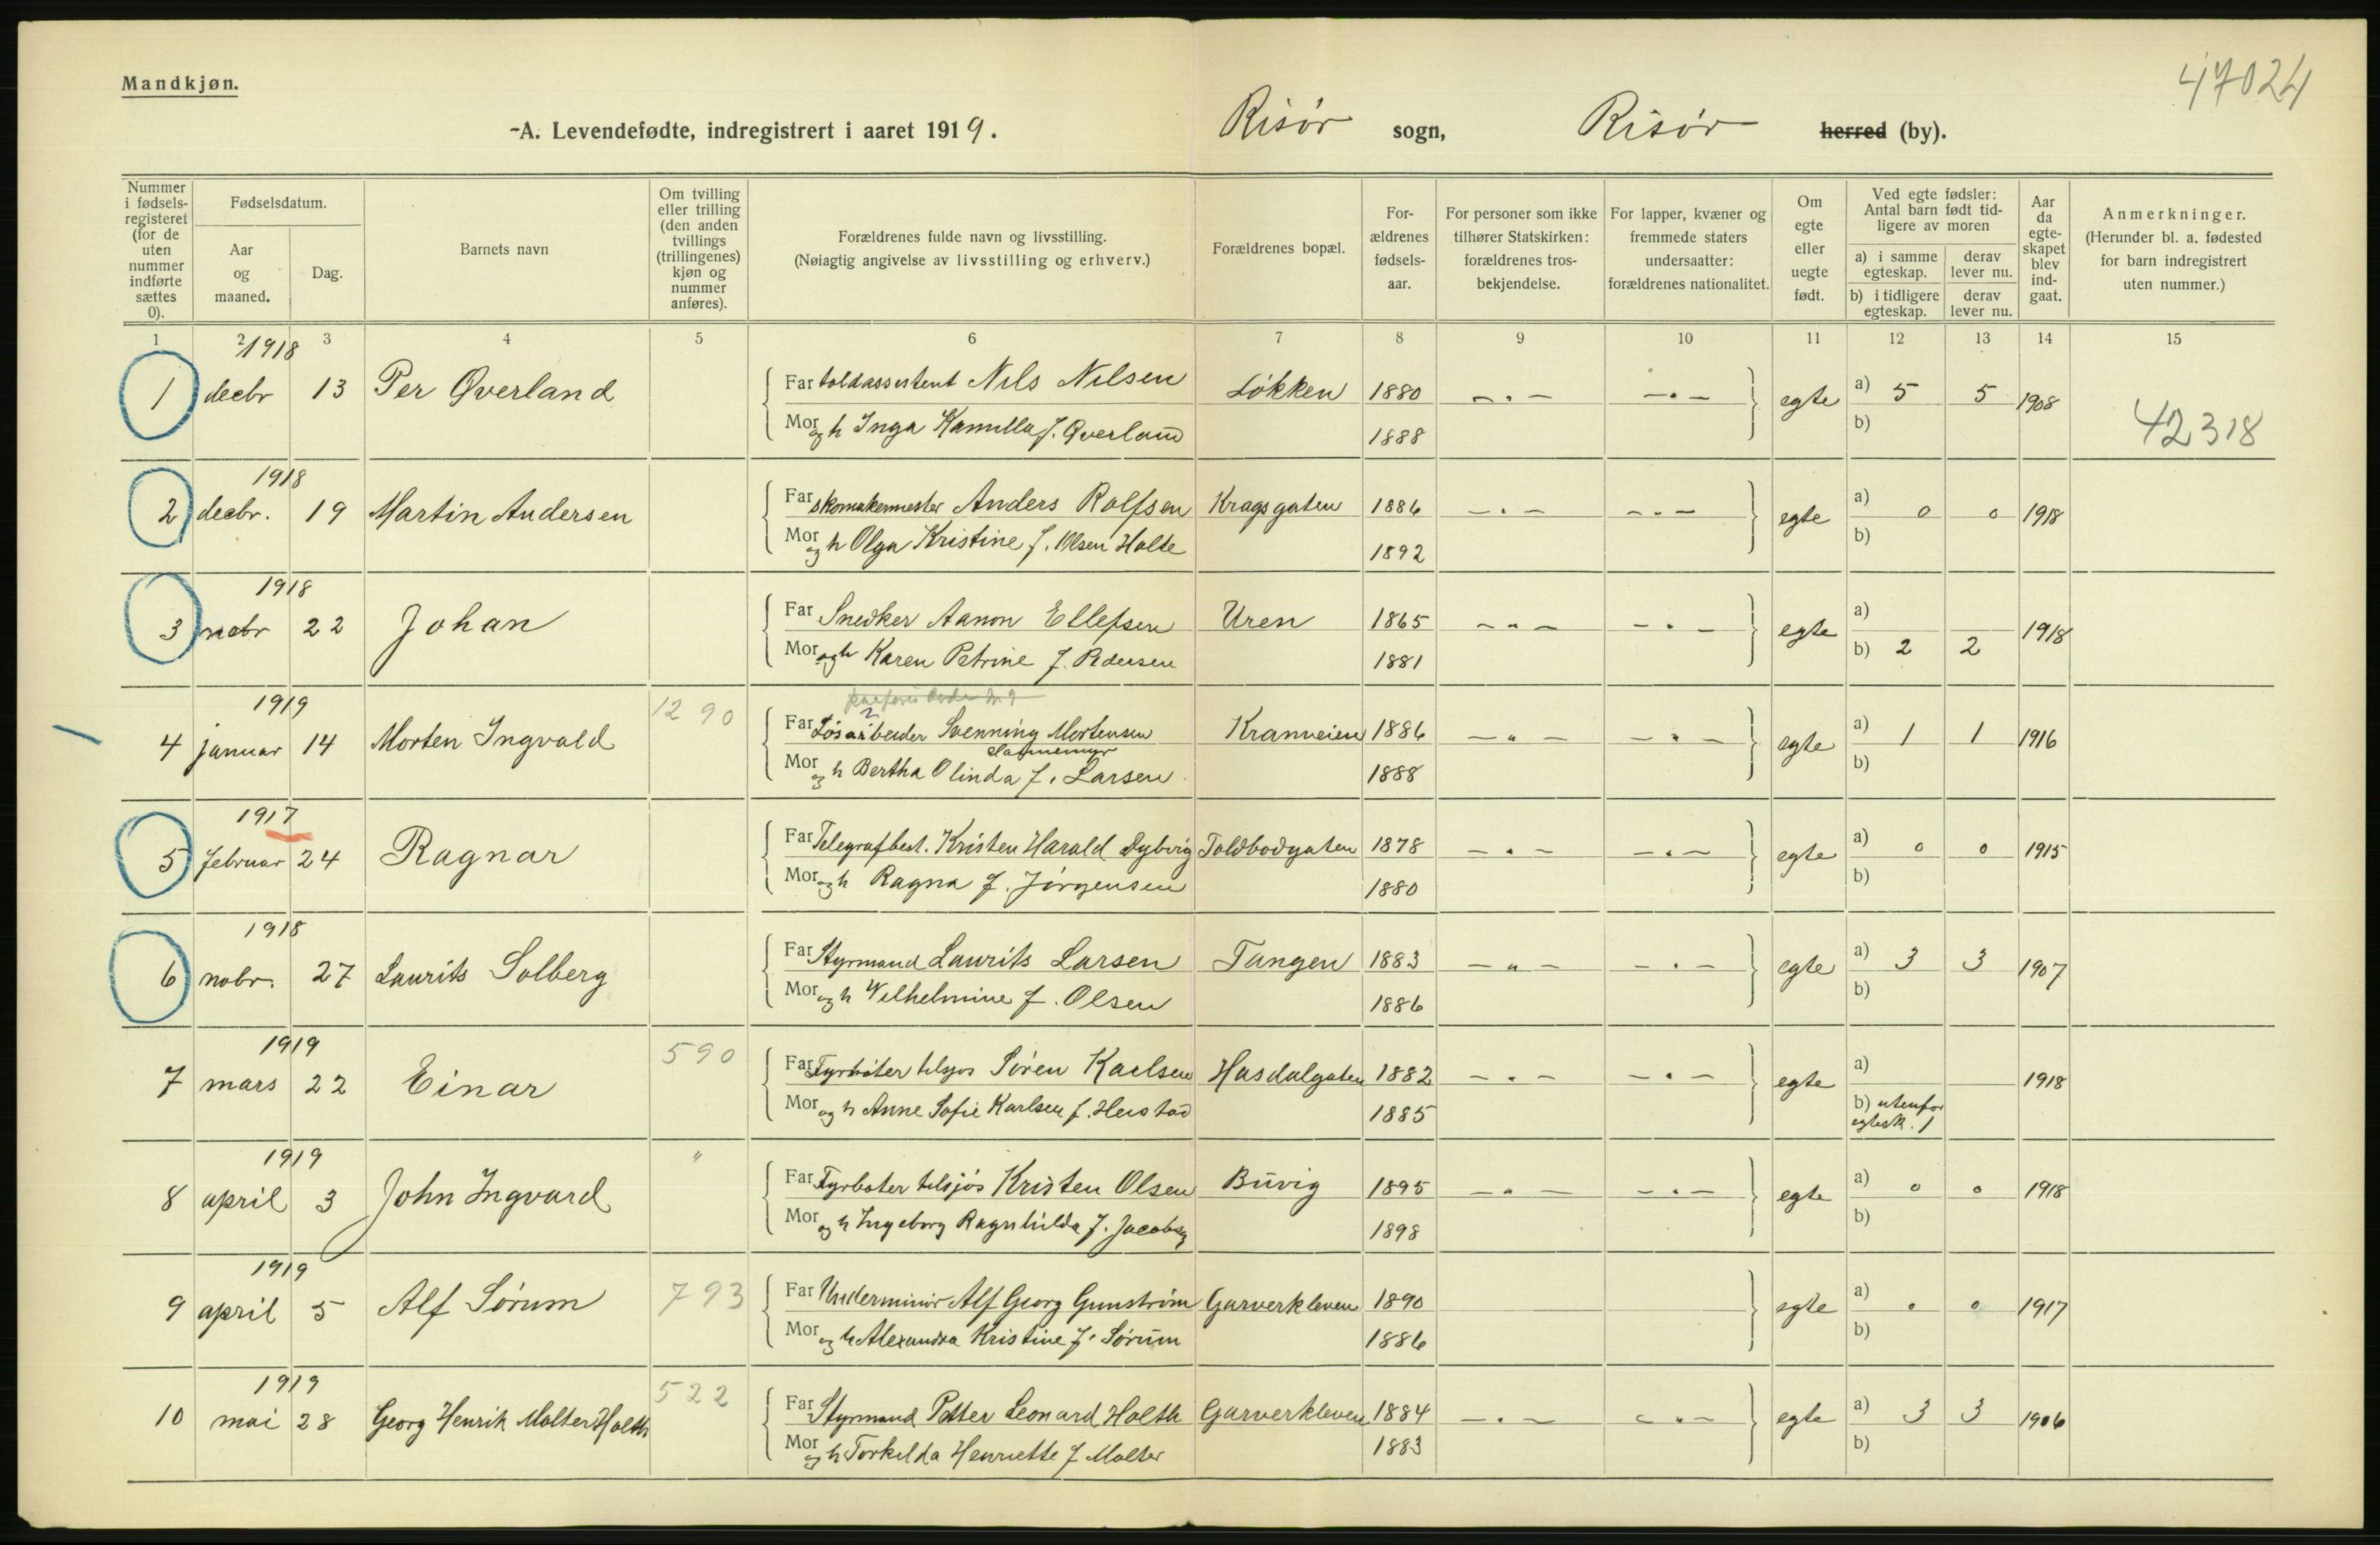 47024
Mandkjøn.
-A. Levendefødte, indregistrert i aaret 1919. Risør sogn, Risør herred (by).
Nummer i fødselsregisteret (for de uten nummer indførte sættes 0).
Fødselsdatum.
Aar og maaned.
Dag.
Barnets navn
Om tvilling eller trilling (den anden tvillings (trillingenes) kjøn og nummer anføres).
Forældrenes fulde navn og livsstilling.
(Nøiagtig angivelse av livsstilling og erhverv.)
Forældrenes bopæl.
Forældrenes fødselsaar.
For personer som ikke tilhører Statskirken: forældrenes trosbekjendelse.
For lapper, kvæner og fremmede staters undersaatter: forældrenes nationalitet.
Om egte eller uegte født.
Ved egte fødsler: Antal barn født tidligere av moren
a) i samme egteskap. derav lever nu.
b) i tidligere egteskap. derav lever nu.
Aar da egteskapet blev indgaat.
Anmerkninger.
(Herunder bl. a. fødested for barn indregistrert uten nummer.)
1 2 3 4 5 6 7 8 9 10 11 12 13 14 15
1918
1 decbr 13 Per Øverland Far toldassistent Nils Nilsen Løkken 1880 — " — — " — egte a) 5 5 1908
Mor og h Inga Kamilla f. Øverland 1888 b)
42318
1918
2 decbr. 19 Martin Andersen Far skomakermester Anders Rolfsen Kragsgaten 1886 — " — — " — egte a) 0 0 1918
Mor og h Olga Kristine f. Olsen Holte 1892 b)
1918
3 22 Johan Far Snedker Aanon Ellefsen Uren 1865 — " — — " — egte a) 1918
Mor og h Karen Petrine f. Pedersen 1881 b) 2 2
1919 12 90
4 januar 14 Morten Ingvald Far Løsarbeider Svenning Mortensen Kranveien 1886 — " — — " — egte a) 1 1 1916
Mor og h Bertha Olinda f. Larsen 1888 b)
1917
5 februar 24 Ragnar Far Telegrafbest. Kristen Harald Dybvig Toldbodgaten 1878 — " — — " — egte a) 0 0 1915
Mor og h Ragna f. Jørgensen 1880 b)
1918
6 nobr. 27 Laurits Solberg Far Styrmand Laurits Larsen Tangen 1883 — " — — " — egte a) 3 3 1907
Mor og h Vilhelmine f. Olsen 1886 b)
1919 590
7 mars 22 Einar Far Fyrbøter tilsjøs Søren Karlsen Hasdalgaten 1882 — " — — " — egte a) 1918
Mor og h Anne Sofie Karlsen f. Heistad 1885 b) utenfor egtesk. 1
1919 "
8 april 3 John Ingvard Far Fyrbøter tilsjøs Kristen Olsen Buvig 1895 — " — — " — egte a) 0 0 1918
Mor og h Ingeborg Ragnhilda f. Jacobsen 1898 b)
1919
9 april 5 Alf Sørum 793 Far Underminør Alf Georg Gunstrøm Garverkleven 1890 egte a) 0 0 1917
Mor og h Alexandra Kristine f. Sørum 1886 b)
1919 522
10 mai 28 Georg Henrik Molter Holth Far Styrmand Petter Leonard Holth Garverkleven 1884 — " — — " — egte a) 3 3 1906
Mor og h Torkilda Henriette f Molter 1883 b)